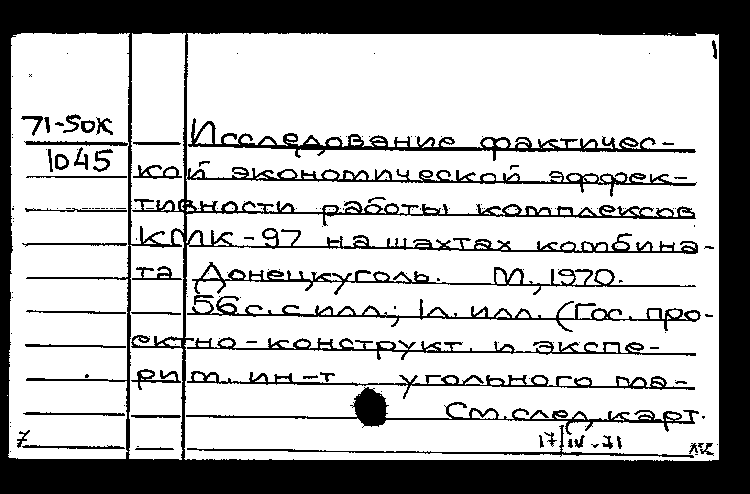 71-5ок
1045
Исследование фактичес-
кой экономической эффек-
тивности работы комплексов
КМК-97 на шахтах комбина-
та Донецкуголь. М., 1970.
56 с. с илл.; 1 л. илл. (Гос. про-
ектно-конструкт. и экспе-
рим. ин-т угольного ма-
См. след. карт.
7
17/IV-71